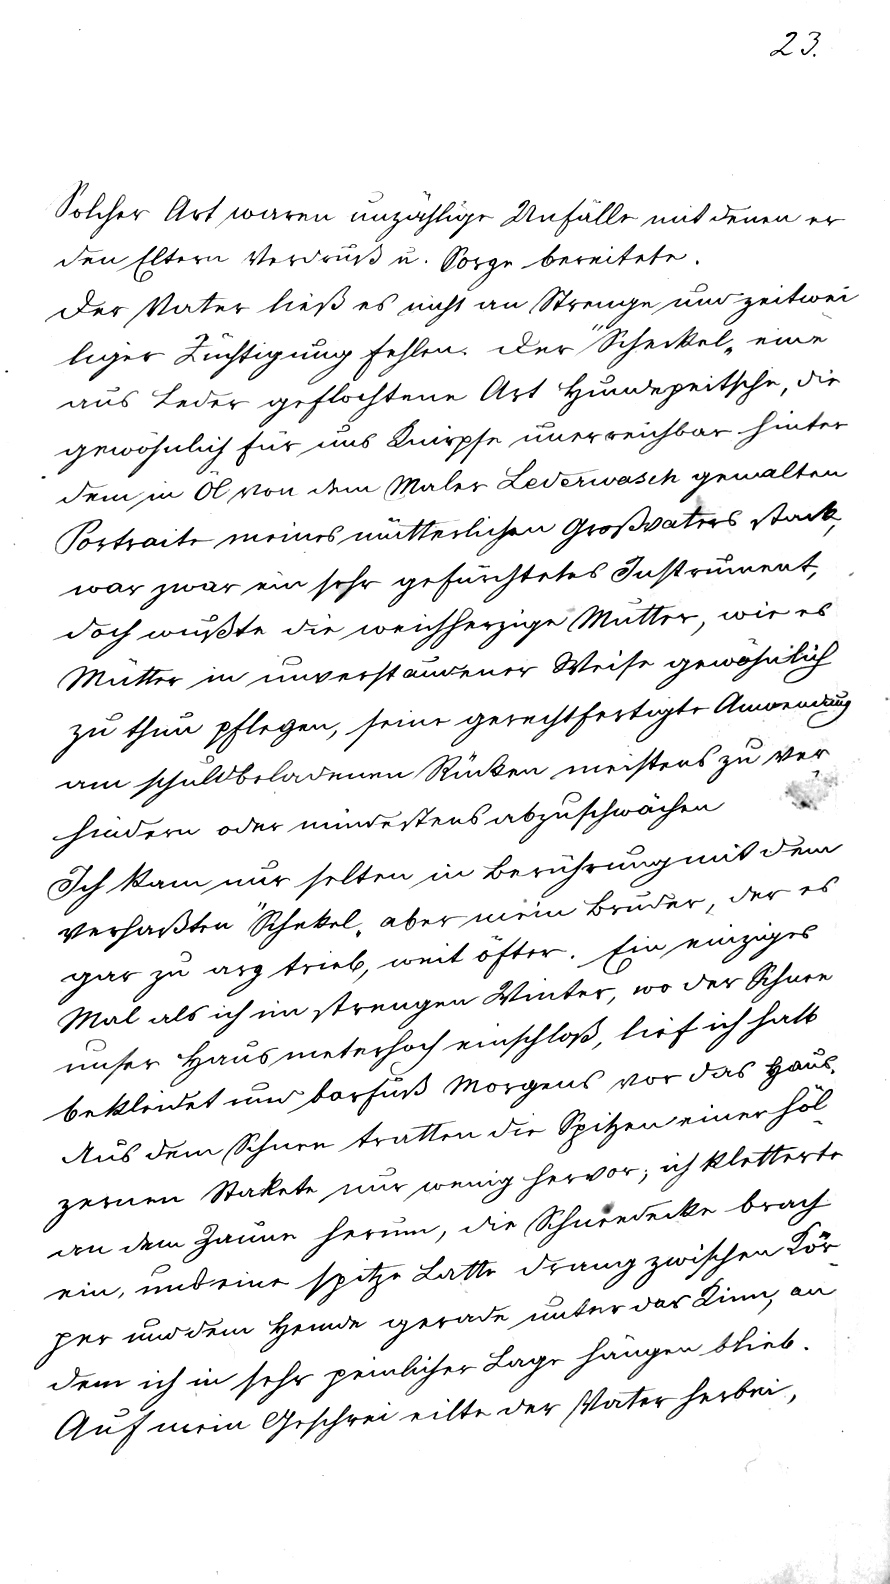 23.
Solcher Art waren unzählige Unfälle mit denen er
den Eltern Verdruß u. Sorge bereitete.
Der Vater ließ es nicht an Strenge und zeitwei
liger Züchtigung fehlen. Der "Scheckel" eine
aus Leder geflochtene Art Hundepeitsche, die
gewöhnlich für uns Knirpse unerreichbar hinter
dem in Öl von dem Maler Lederwasch gemalten
Portraite meines mütterlichen Großvaters stack,
war zwar ein sehr gefürchtetes Instrument,
doch wußte die weichherzige Mutter, wie es
Mütter in unverstandener Weise gewöhnlich
zu thun pflegen, seine gerechtfertigte Anwendung
am schuldbeladenen Rücken meistens zu ver
hindern oder mindestens abzuschwächen
Ich kam nur selten in Berührung mit dem
verhaßten "Schekel" aber mein Bruder, der es
gar zu arg trieb, weit öfter. Ein einziges
Mal als ich im strengen Winter, wo der Schnee
unser Haus meterhoch einschloß, lief ich halb
bekleidet und barfuß Morgens vor das Haus.
Aus dem Schnee tratten die Spitzen einer höl-
zernen Stakete nur wenig hervor; ich kletterte
an dem Zaune herum, die Schneedecke brach
ein, und eine spitze Latte drang zwischen Kör-
per und dem Hemde gerade unter das Kinn, an
dem ich in sehr peinlicher Lage hängen blieb.
Auf mein Geschrei eilte der Vater herbei,